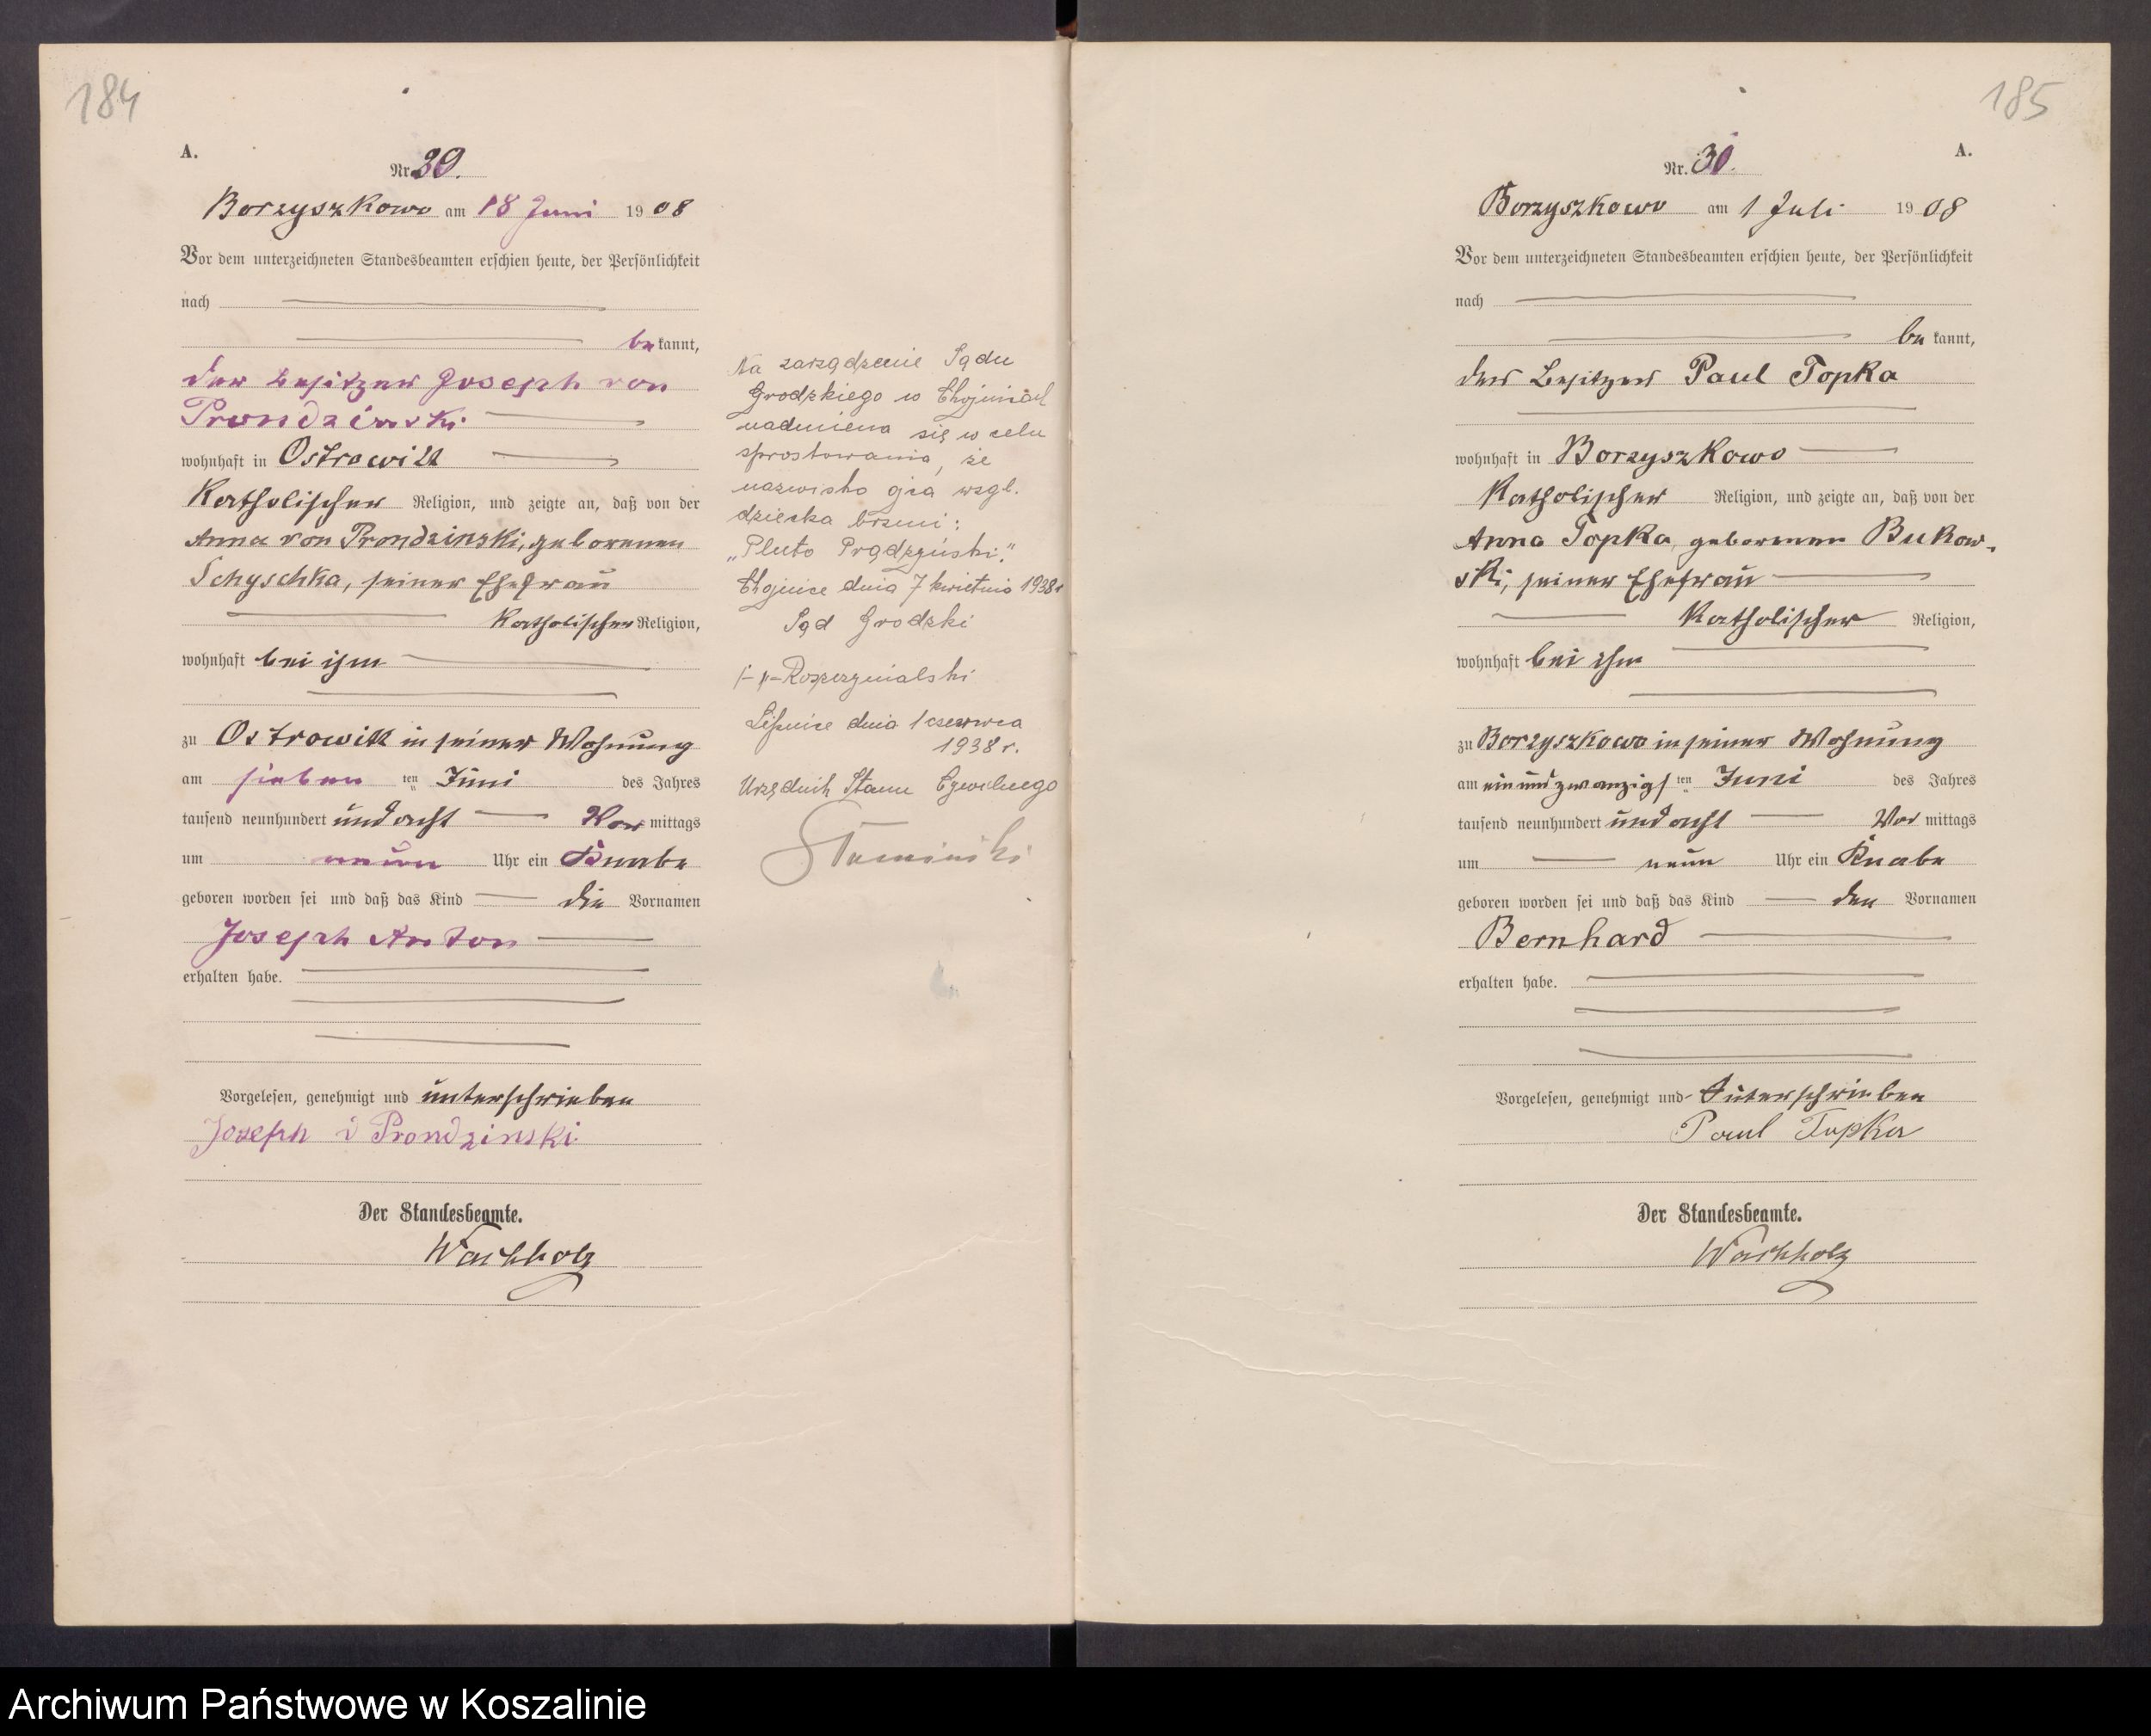 184
A.
Nr. 29.
Borzyszkowo am 18 Juni 1908
Vor dem unterzeichneten Standesbeamten erschien heute, der Persönlichkeit
nach
bekannt,
der Besitzer Joseph von
Prondzinski
wohnhaft in Ostrowitt
Katholischer Religion, und zeigte an, daß von der
Anna von Prondzinski, geborenen
Schyschka, seiner Ehefrau
Katholischer Religion,
wohnhaft bei ihm
zu Ostrowitt in seiner Wohnung
am sieben ten Juni des Jahres
tausend neunhundert und acht Vor mittags
um neun Uhr ein Knabe
geboren worden sei und daß das Kind die Vornamen
Joseph Anton
erhalten habe.
Vorgelesen, genehmigt und unterschrieben
Joseph v Prondzinski
Der Standesbeamte.
Wachholz
Na zarządzenie Sądu
Grodzkiego w Chojnicach
nadmienia się w celu
sprostowania, że
nazwisko ojca wzgl.
dziecka brzmi:
„Pluto Prądzyński."
Chojnice dnia 7 kwietnia 1938 r
Sąd Grodzki
/-/
Lipnice dnia 1 czerwca
1938 r.
Urzędnik Stanu Cywilnego
185
A.
Nr. 30.
Borzyszkowo am 1 Juli 1908
Vor dem unterzeichneten Standesbeamten erschien heute, der Persönlichkeit
nach
bekannt,
der Besitzer Paul Topka
wohnhaft in Borzyszkowo
Katholischer Religion, und zeigte an, daß von der
Anna Topka, geborenen Bukow-
ski, seiner Ehefrau
Katholischer Religion,
wohnhaft bei ihm
zu Borzyszkowo in seiner Wohnung
am einundzwanzigs ten Juni des Jahres
tausend neunhundert und acht Vor mittags
um neun Uhr ein Knabe
geboren worden sei und daß das Kind den Vornamen
Bernhard
erhalten habe.
Vorgelesen, genehmigt und unterschrieben
Paul Topka
Der Standesbeamte.
Wachholz
Archiwum Państwowe w Koszalinie